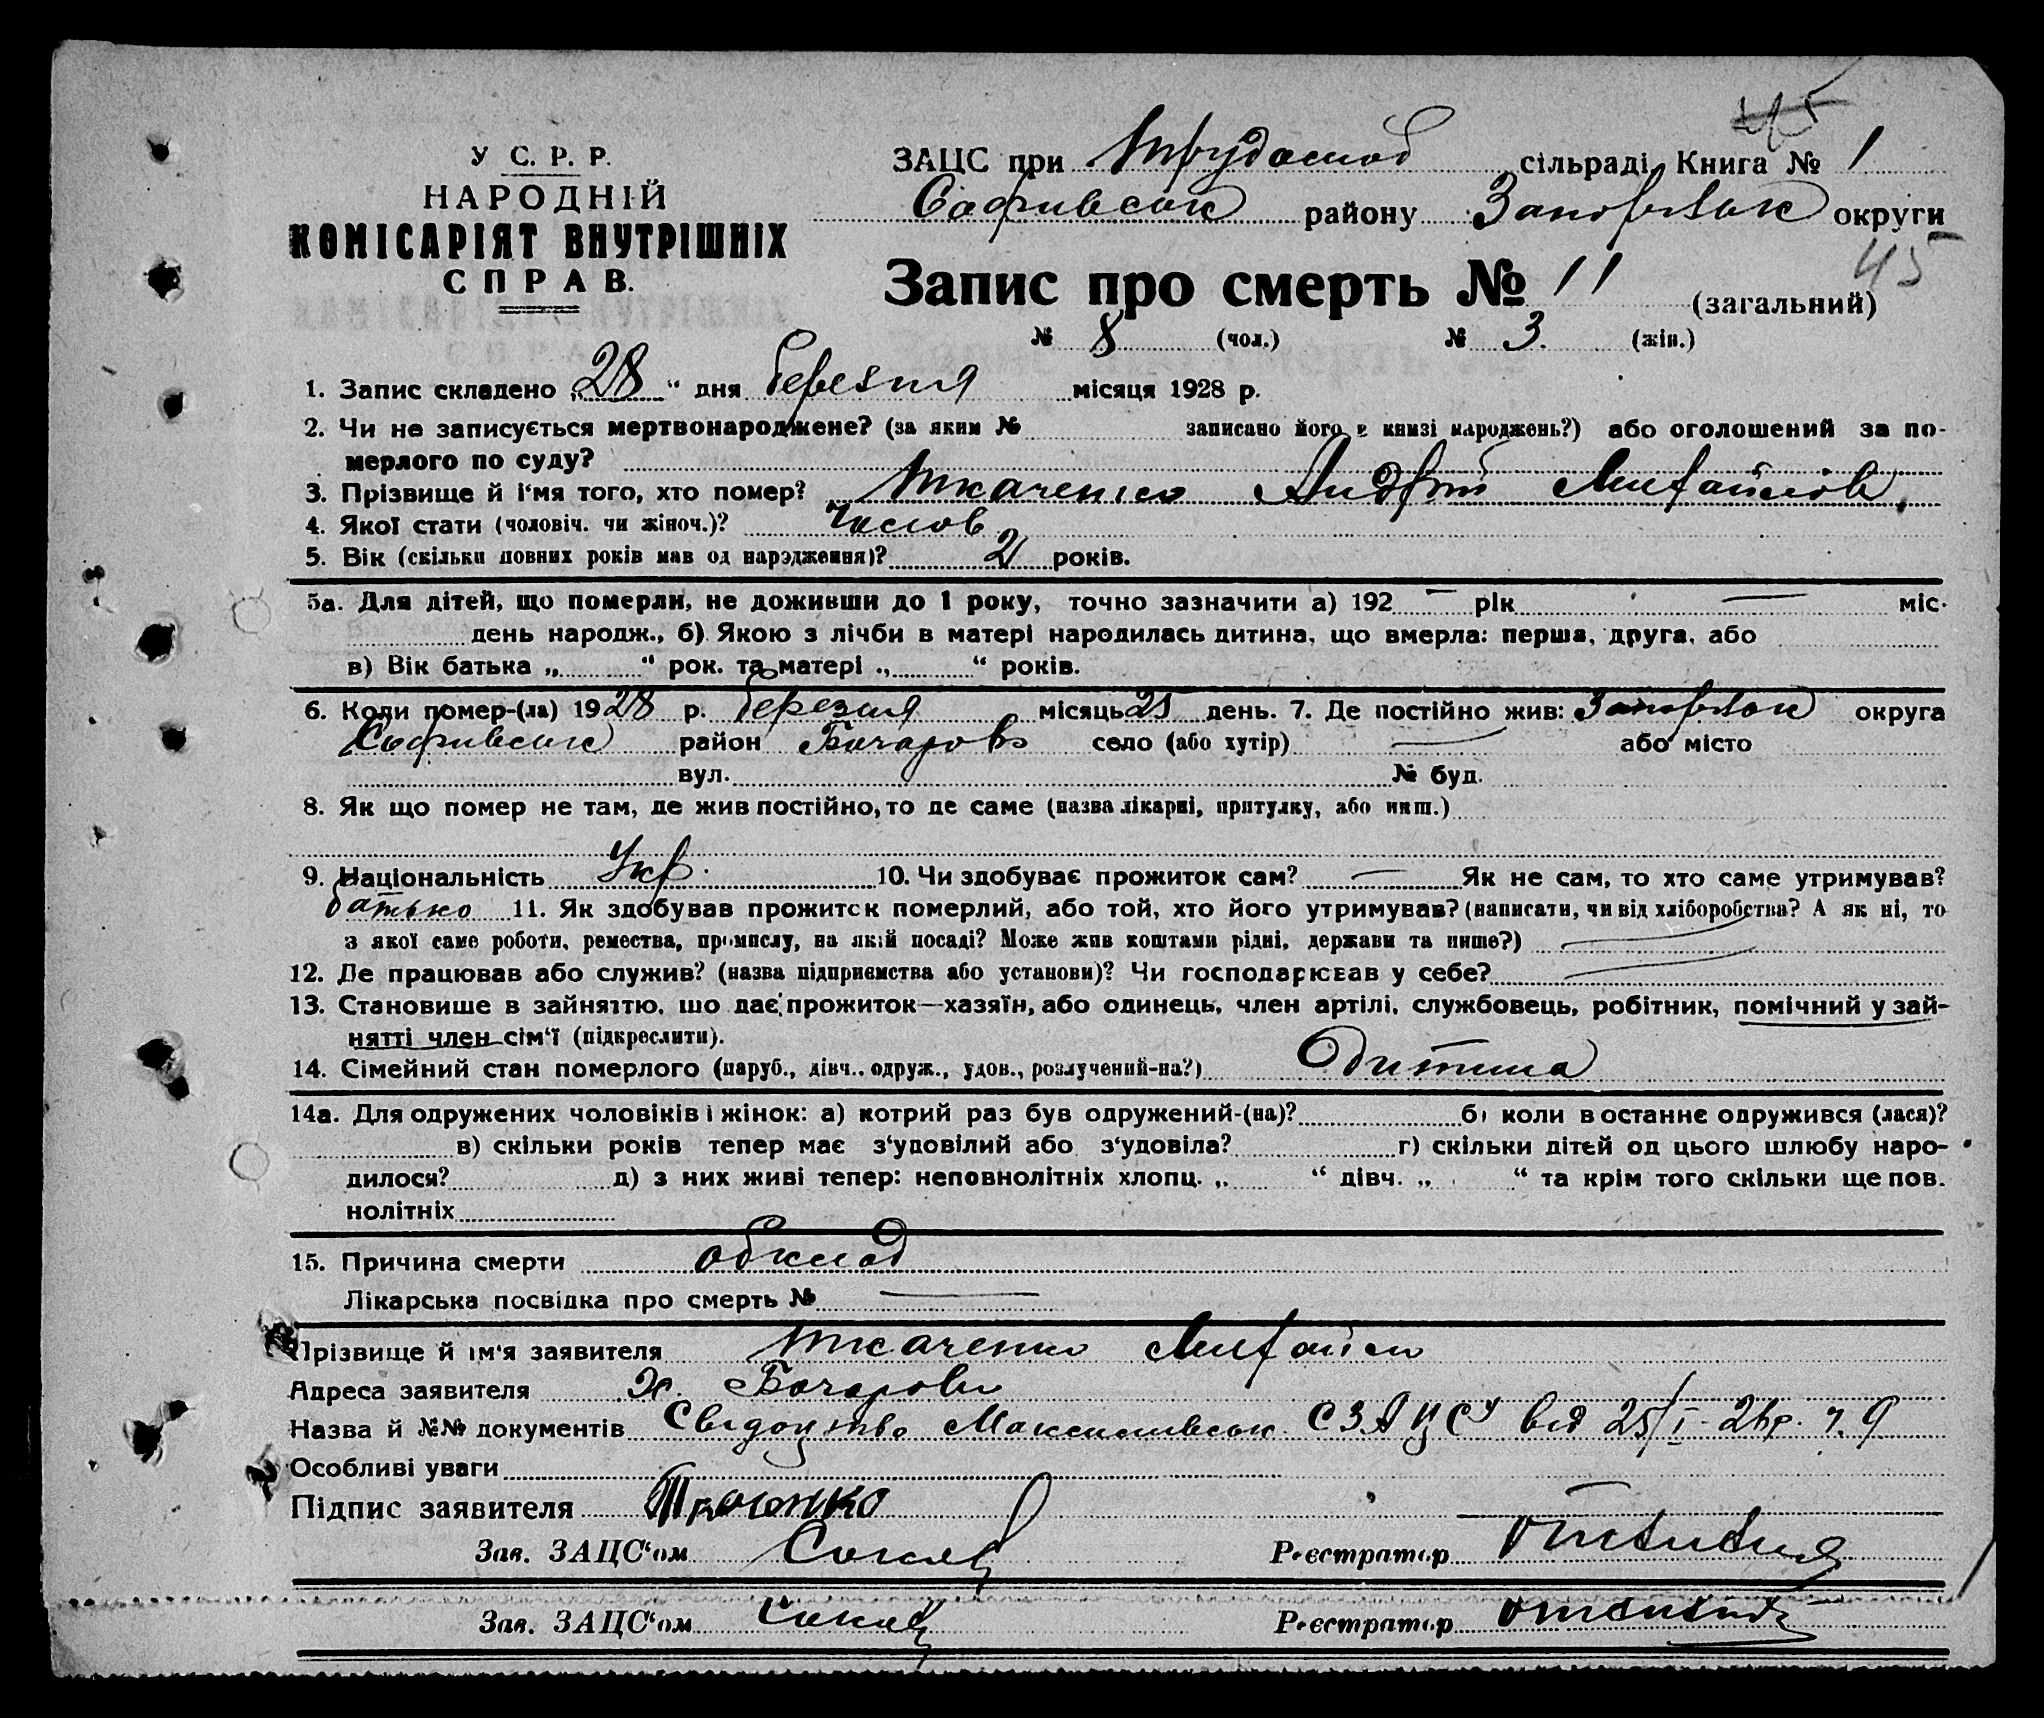 45
У С. Р. Р.
НАРОДНІЙ
КОМІСАРІЯТ ВНУТРІШНІХ
СПРАВ.
ЗАЦС при сільраді, Книга № 1
Софиївськ району Запоріжськ округи
45
Запис про смерть № 11 (загальний)
№ 8 (чол.) № 3. (жін.)
1. Запис складено „28“ дня березня місяця 1928 р.
2. Чи не записується мертвонароджене? (за яким № записано його в книзі народжень?) або оголошений за по-
мерлого по суду?
3. Прізвище й і'мя того, хто помер? Ткаченко Андрій Михайлов
4. Якої стати (чоловіч. чи жіноч.)? Чолов
5. Вік (скільки повних років мав од народження)? 2 років.
5а. Для дітей, що померли, не доживши до 1 року, точно зазначити а) 192 — рік — міс.
день народж., б) Якою з лічби в матері народилась дитина, що вмерла: перша, друга, або
в) Вік батька „ “ рок. та матері „ “ років.
6. Коли помер-(ла) 1928 р. березня місяць 25 день. 7. Де постійно жив: Запоріжськ округа
Софиївськ район Бочарово село (або хутір) — або місто
вул. № буд.
8. Як що помер не там, де жив постійно, то де саме (назва лікарні, притулку, або инш.)
9. Національність Укр. 10. Чи здобуває прожиток сам? — Як не сам, то хто саме утримував?
батько 11. Як здобував прожиток померлий, або той, хто його утримував? (написати, чи від хліборобства? А як ні, то
з якої саме роботи, ремества, промислу, на якій посаді? Може жив коштами рідні, держави та инше?) —
12. Де працював або служив? (назва підприємства або установи)? Чи господарював у себе? —
13. Становище в зайняттю, що дає прожиток—хазяїн, або одинець, член артілі, службовець, робітник, помічний у зай-
нятті член сім'ї (підкреслити).
14. Сімейний стан померлого (паруб., дівч., одруж., удов., розлучений-на?) Дитина
14а. Для одружених чоловіків і жінок: а) котрий раз був одружений-(на)? б) коли в останнє одружився (лася)?
в) скільки років тепер має з'удовілий або з'удовіла? г) скільки дітей од цього шлюбу наро-
дилося? д) з них живі тепер: неповнолітніх хлопц. „ “ дівч. „ “ та крім того скільки ще пов.
нолітніх
15. Причина смерти обклад
Лікарська посвідка про смерть № —
Прізвище й ім'я заявителя Ткаченко Михайло
Адреса заявителя х. Бочарови
Назва й №№ документів Свідоцтво від 25/I
Особливі уваги
Підпис заявителя
Зав. ЗАЦС'ом Реєстратор
Зав. ЗАЦС'ом Реєстратор